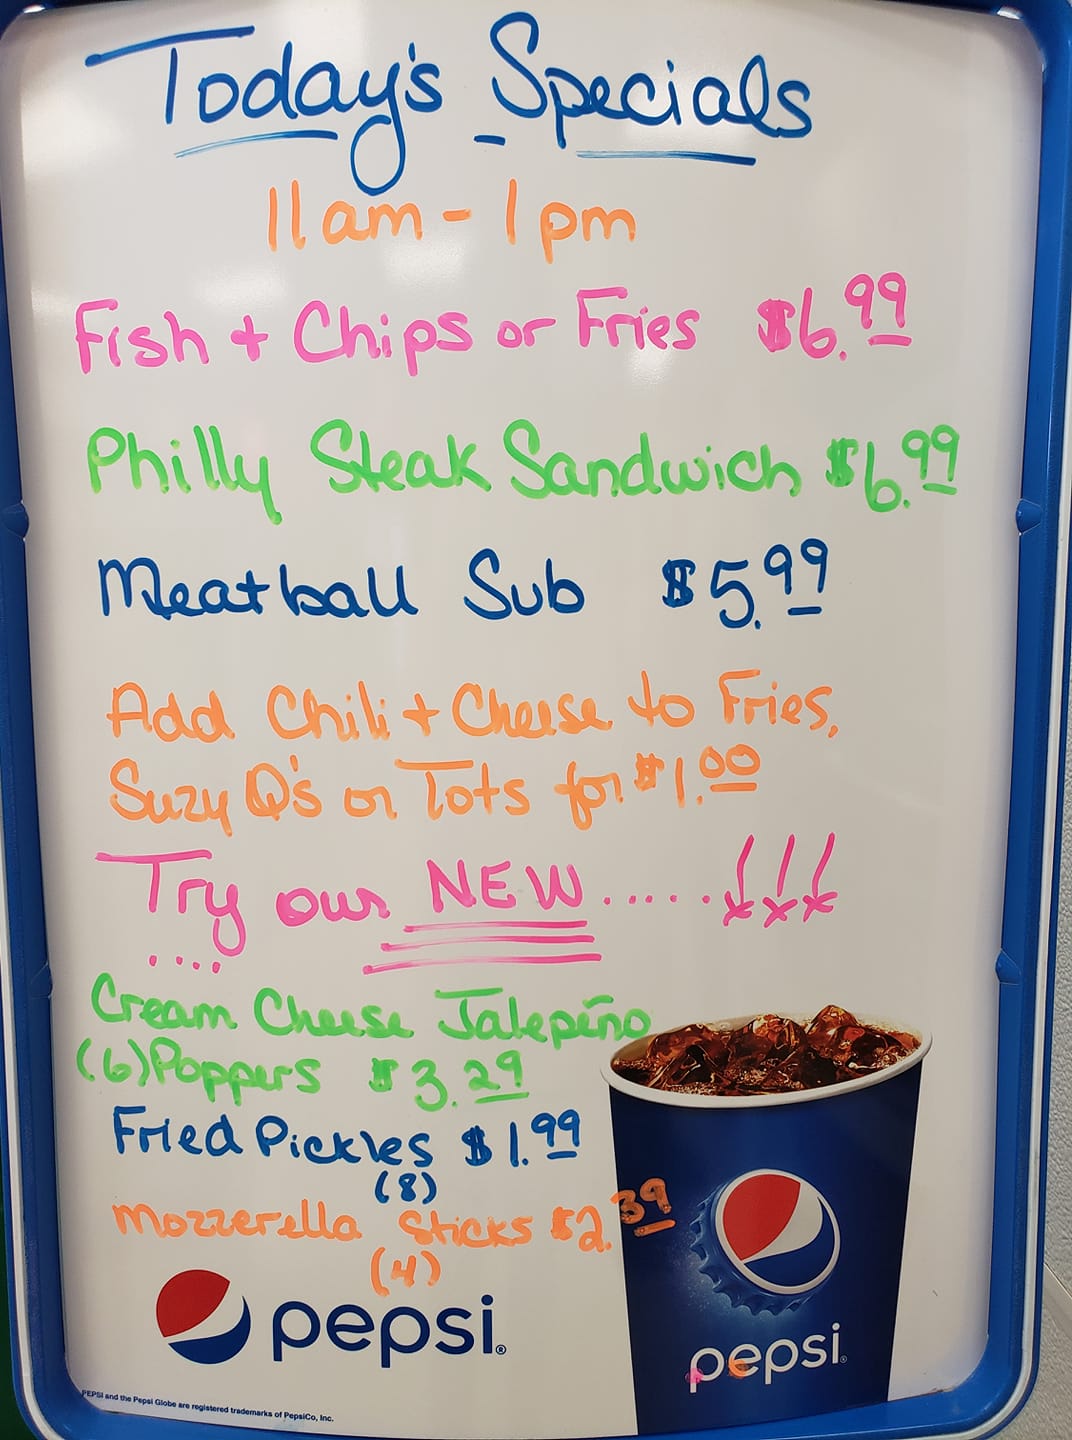 Today's Specials
11am - 1pm
Fish + Chips or Fries $6.99
Philly Steak Sandwich $6.99
Meatball Sub $5.99
Add Chili + Cheese to Fries,
Suzy Q's or Tots for $1.00
Try our NEW.....!!!
....
Cream Cheese Jalepeño
(6) Poppers $3.29
Fried Pickles $1.99
(8)
Mozzerella Sticks $2.39
(4)
pepsi®
pepsi®
PEPSI and the Pepsi Globe are registered trademarks of PepsiCo, Inc.